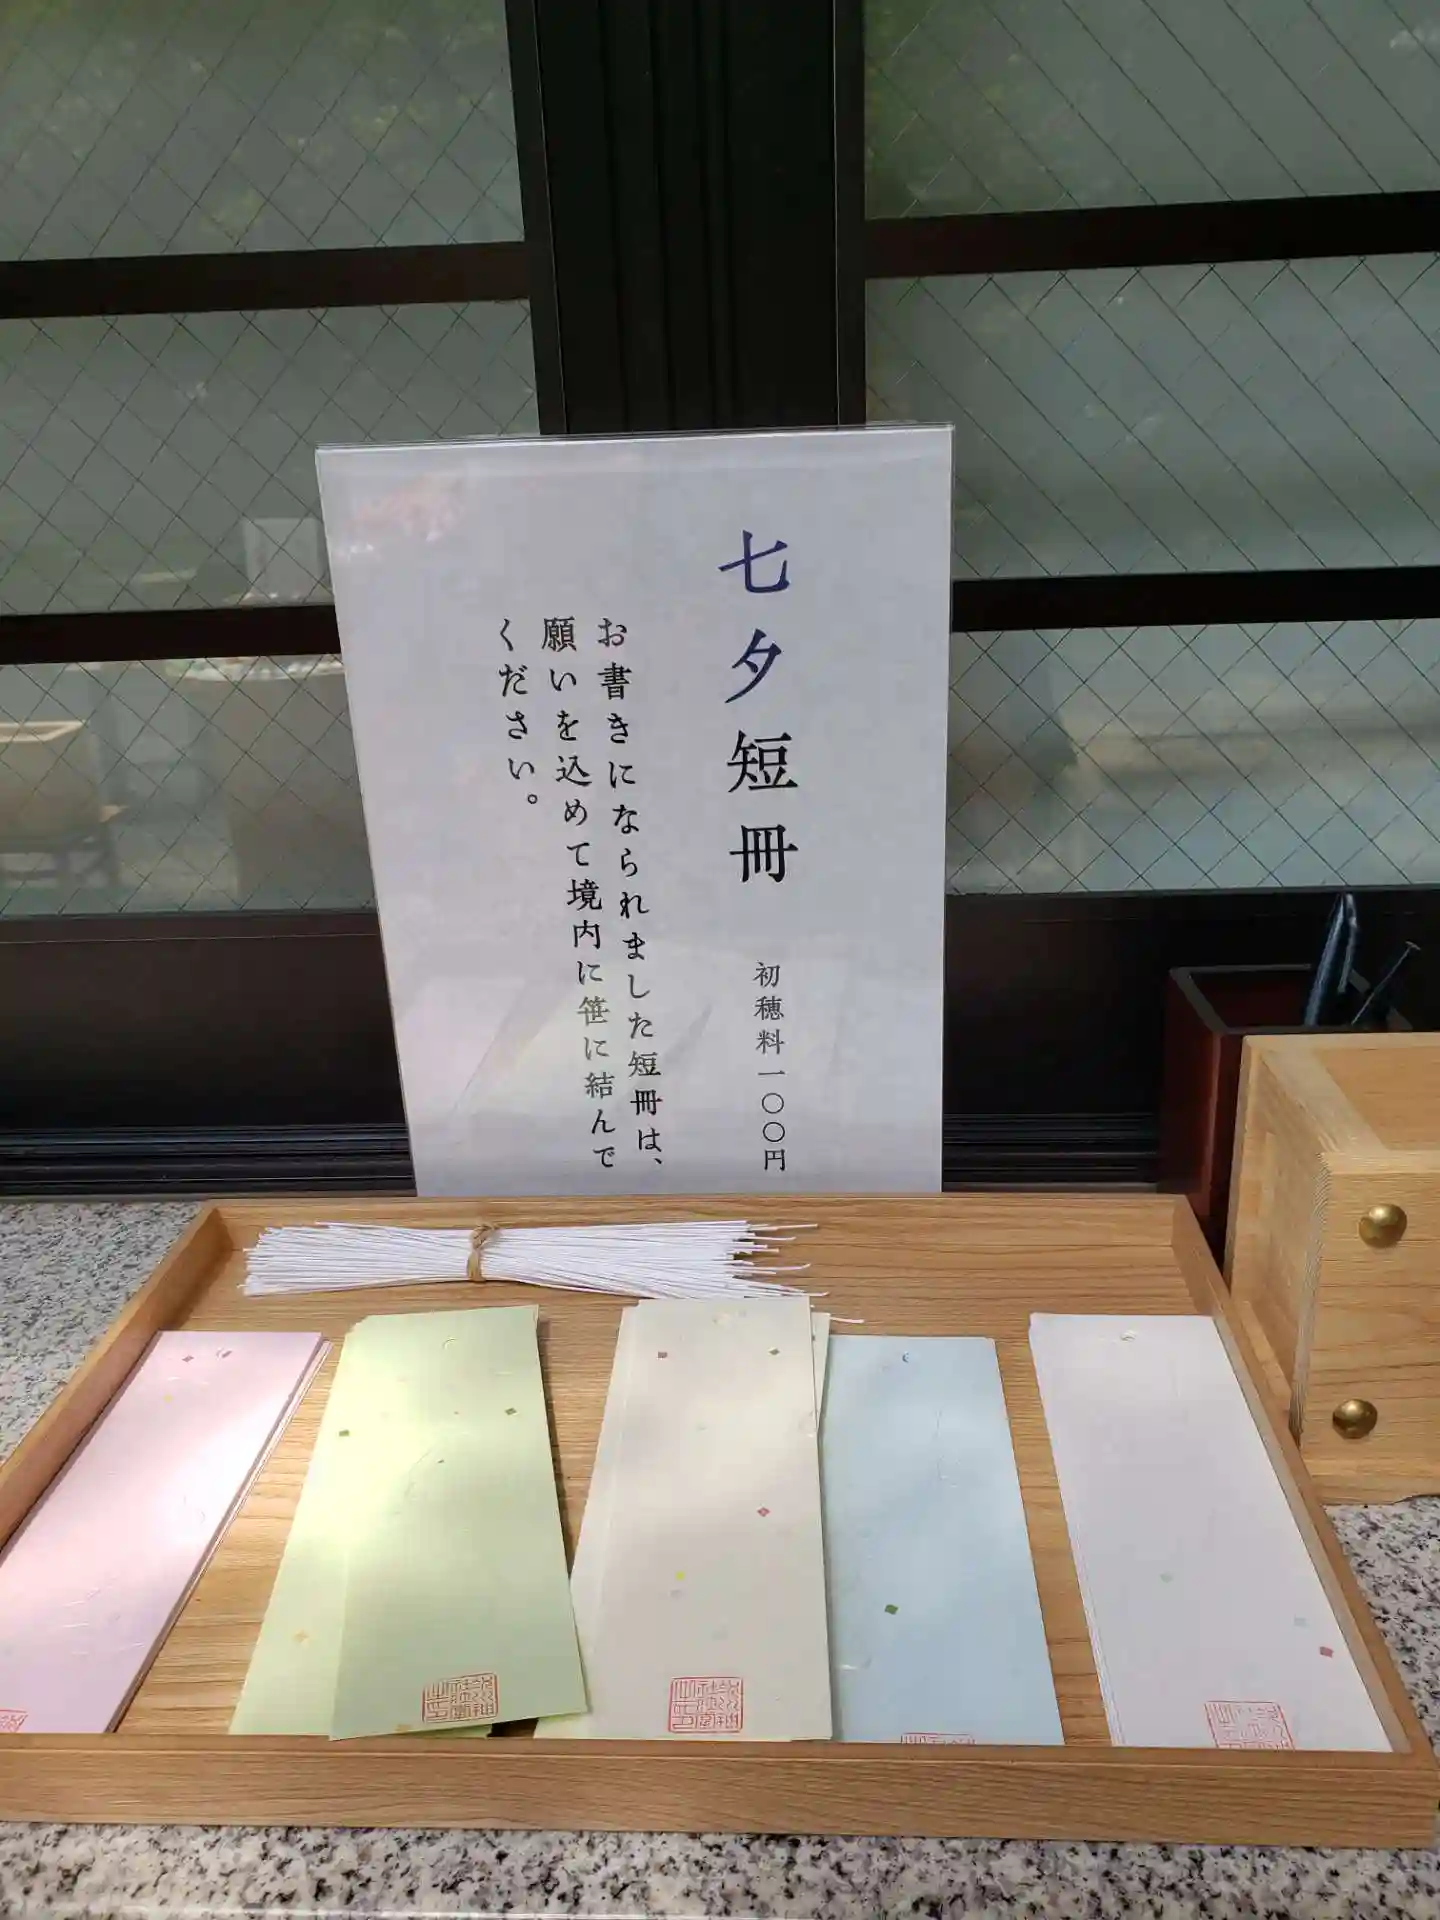 七夕短冊 初穂料一〇〇円
お書きになられました短冊は、
願いを込めて境内に笹に結んで
ください。